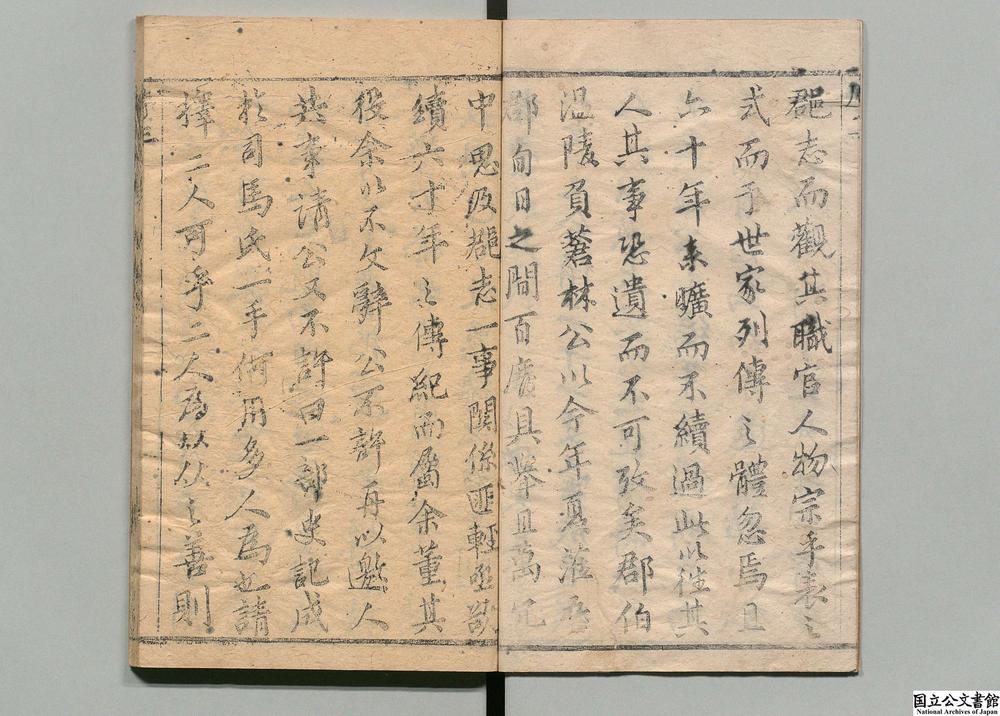 郡志而觀其職官人物宗乎表之
式而于世家列傳之體忽焉且
六十年來曠而不續過此以往其
人其事恐遺而不可攷矣郡伯
溫陵負蒼林公以今年夏涖吾
郡旬日之間百廢具舉且萬冗
中思及郡志一事關係匪輕亟欲
續六十年之傳紀而屬余董其
役余以不文辭公不許再以邀人
共事請公又不許曰一部史記成
於司馬氏一手何用多人為也請
擇二人可乎二人為以從之善則
国立公文書館
National Archives of Japan